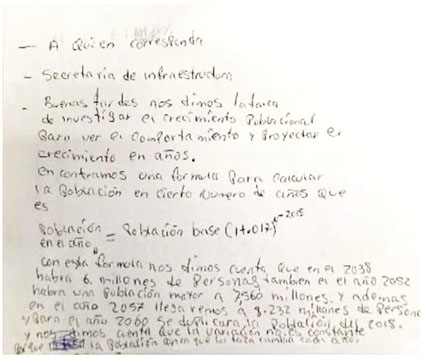 — A Quien corresponda
- Secretaria de infraestructura
- Buenas tardes nos dimos la tarea
de investigar el crecimiento Poblacional
Para ver el comportamiento y Proyectar el
crecimiento en años.
encontramos una formula Para calcular
la Población en cierto numero de años que
es
Población en el año = Población base (1+.017) -2015
con esta formula nos dimos cuenta que en el 2038
habra 6. millones de Personas tambien el el año 2052
habra una Población mayor a 7560 millones. y además
en el año 2057 llegaremos a 8.232 millones de Persona
y Para el año 2060 se duplicara la Población del 2018.
y nos dimos cuenta que la variación no es constante
Porque la Población aunque la taza cambia cada año.